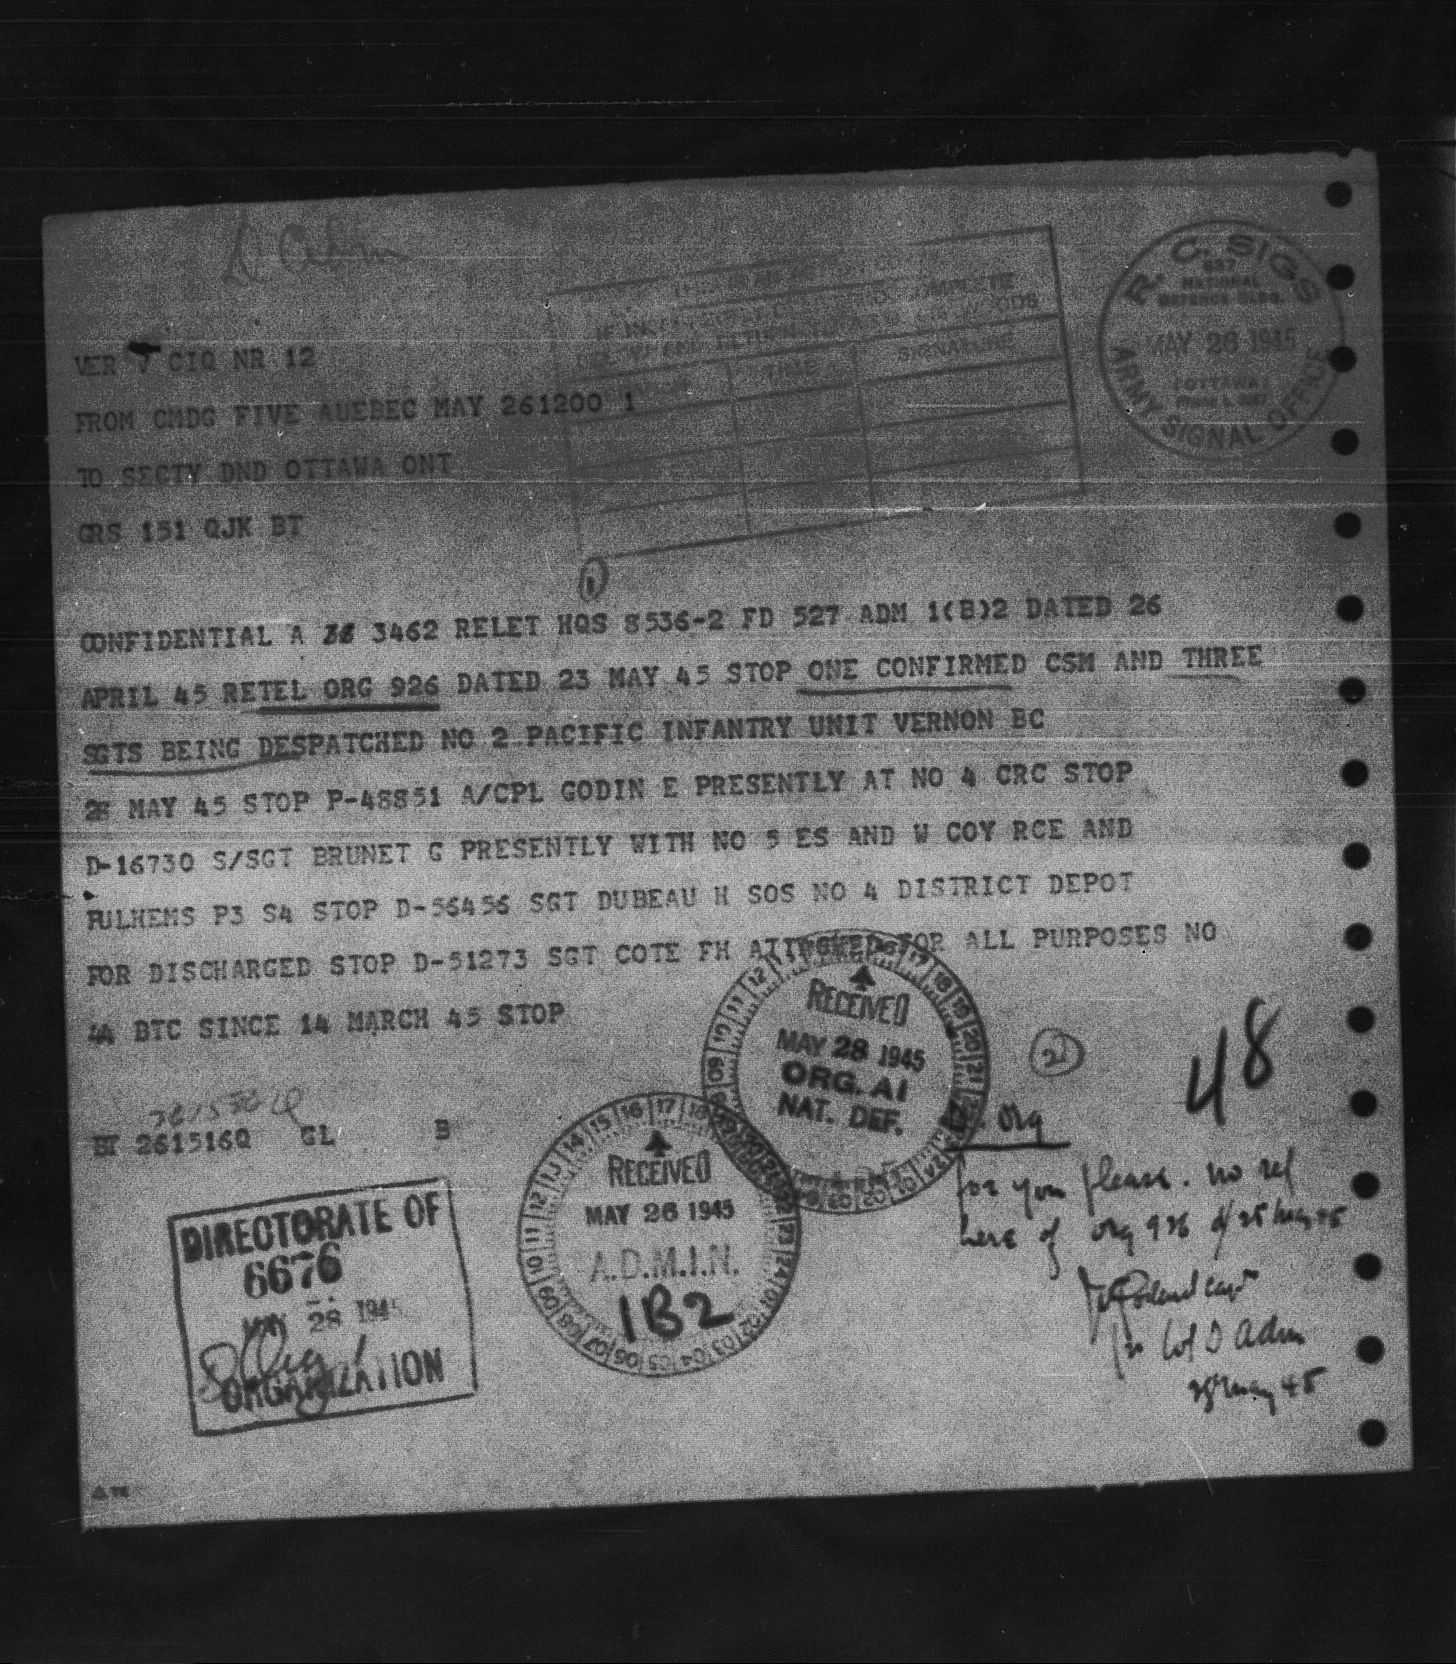 D Adm
R. C. SIGS
NATIONAL
DEFENCE BLDG.
MAY 26 1945
(OTTAWA)
ARMY SIGNAL OFFICE
TIME
SIGNATURE
VER V CIQ NR 12
FROM CMDG FIVE AUEBEC MAY 261200 1
TO SECTY DND OTTAWA ONT
GRS 151 QJK BT
1
CONFIDENTIAL A 3462 RELET HQS 8536-2 FD 527 ADM 1(B)2 DATED 26
APRIL 45 RETEL ORG 926 DATED 23 MAY 45 STOP ONE CONFIRMED CSM AND THREE
SGTS BEING DESPATCHED NO 2 PACIFIC INFANTRY UNIT VERNON BC
28 MAY 45 STOP P-48851 A/CPL GODIN E PRESENTLY AT NO 4 CRC STOP
D-16730 S/SGT BRUNET G PRESENTLY WITH NO 5 ES AND W COY RCE AND
PULHEMS P3 S4 STOP D-56456 SGT DUBEAU H SOS NO 4 DISTRICT DEPOT
FOR DISCHARGED STOP D-51273 SGT COTE FH ATTACHED FOR ALL PURPOSES NO
44 BTC SINCE 14 MARCH 45 STOP
BT 261516Q GL B
RECEIVED
MAY 28 1945
ORG. A1
NAT. DEF.
2
48
Org
for you please. no ref
here of org 926 d/25 May 45
Capt
for Col D Adm
28 May 45
RECEIVED
MAY 26 1945
A.D.M.I.N.
1B2
DIRECTORATE OF
6676
MAY 28 1945
D Org 1
ORGANIZATION